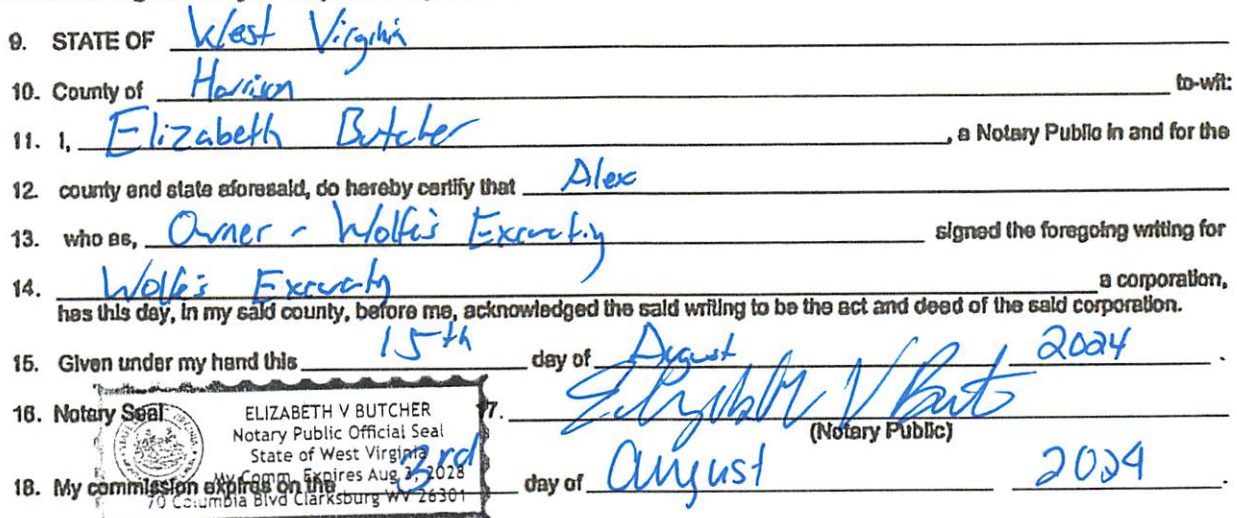 9. STATE OF West Virginia
10. County of Harrison to-wit:
11. I, Elizabeth Butcher, a Notary Public in and for the
12. county and state aforesaid, do hereby certify that Alex
13. who as, Owner - Wolfe's Excavating signed the foregoing writing for
14. Wolfe's Excavating a corporation,
has this day, in my said county, before me, acknowledged the said writing to be the act and deed of the said corporation.
15. Given under my hand this 15th day of August 2024.
16. Notary Seal 17.
ELIZABETH V BUTCHER
Notary Public Official Seal
State of West Virginia
My Comm. Expires Aug 3, 2028
70 Columbia Blvd Clarksburg WV 26301
(Notary Public)
18. My commission expires on the 3rd day of August